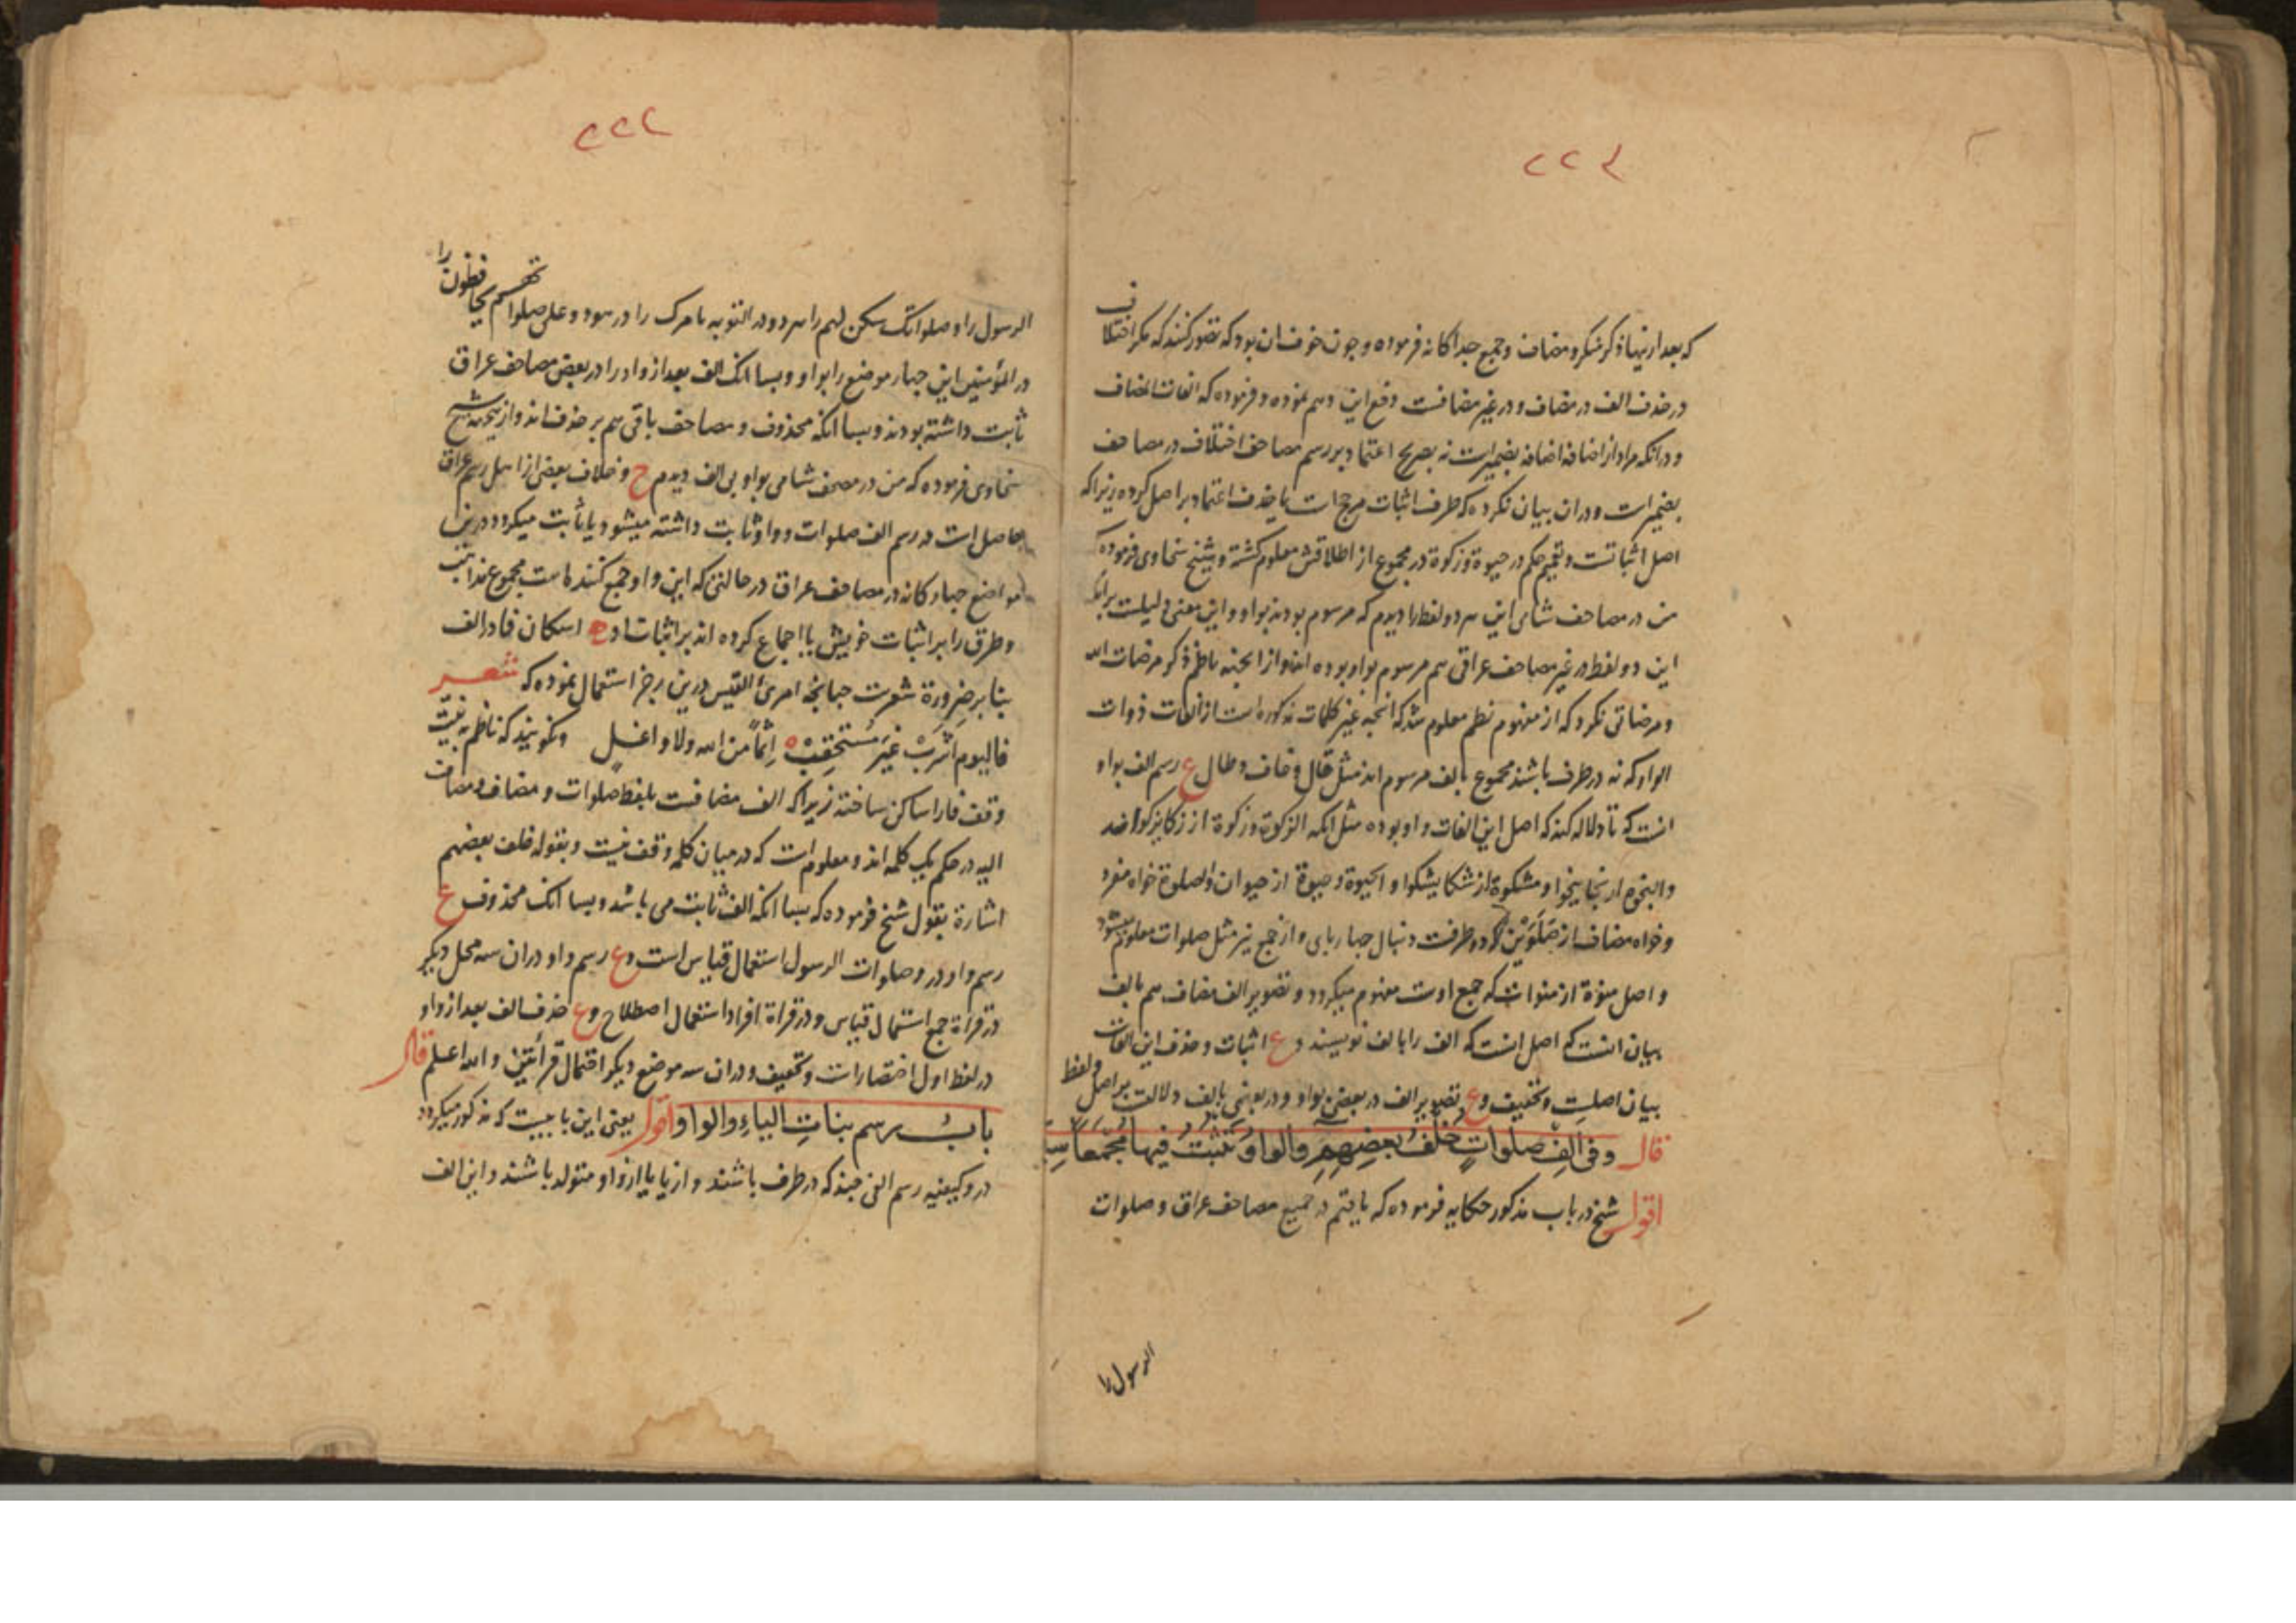 ۲۲۴
که بعد از نیها ذکر منکر و مضاف و جمع جداکانه فرموده و چون خوف ان بود که تصور کنند که مکر اختلاف
در حذف الف در مضاف و در غیر مضافست دفع این وهم نموده و فرموده که الفات المضاف
و در انکه مراد از اضافه اضافه بضمیرات نه بصریح اعتماد بر رسم مصاحف اختلاف در مصاحف
بضمیرات و دران بیان نکرده که طرف اثبات مرجح است یا حذف اعتماد بر اصل کرده زیرا که
اصل اثباتست و تعمیم حکم در حیوة و زکوة در مجموع از اطلاقش معلوم کشته و شیخ سخاوی فرموده
من در مصاحف شامی این هر دو لفظ را دیدم که مرسوم بودند بواو و این معنی دلیلست برانکه
این دو لفظ در غیر مصاحف عراقی هم مرسوم بواو بوده اند و از انجه ناظم ذکر مرضات الله
و مرضاتی نکرد که از مفهوم نظم معلوم شد که انچه غیر کلمات مذکوره است از الفات ذوات
الواو که نه در طرف باشند مجموع بالف مرسوم اند مثل قال و خاف و طال ع رسم الف بواو
انست که تا دلاله کند که اصل این الفات واو بوده مثل انکه الزکوة و زکوة از زکا یزکوا ضد
والنجوة از نجا ینجوا و مشکوة از شکا یشکوا و الحیوة و حیوة از حیوان و الصلوة خواه مفرد
و خواه مضاف از صَلَوَیْن که دو طرفست دنبال جهارپای و از جمع نیز مثل صلوات معلوم میشود
و اصل منوة از منوات که جمع اوست مفهوم میکردد و تصویر الف مضاف هم بالف
ببیان انست که اصل انست که الف را بالف نویسند و ع اثبات و حذف این الفات
بیان اصلیت و تخفیف و ع تصویر الف در بعضی بواو و در بعضی بالف دلالت بر اصل و لفظ
قال وفی الفِ صلواتٍ خُلفُ بعضِهِمِ والواوُ تثبُتُ فیها مُجمَعاً
اقول شیخ در باب مذکور حکایه فرموده که یافتم در جمیع مصاحف عراق و صلوات
الرسول را
۲۲۲
الرسول را و صلواتک سکن لهم را هر دو در التوبه را در هود و علی صلواتهم یحافظون را
در المؤمنین این جهار موضع را بواو و بسا انک الف بعد از واو را در بعض مصاحف عراق
ثابت داشته بودند و بسا انکه محذوف و مصاحف باقی هم بر حذف اند و از نجمه شیخ
سخاوی فرموده که من در مصحف شامی بواو بی الف دیدم ح و خلاف بعض از اهل رسم عراق
حاصل است در رسم الف صلوات و واو ثابت داشته میشود یا ثابت میکردد درین
مواضع جهارکانه در مصاحف عراق در حالتی که این واو جمع کننده است مجموع
و طرق را بر اثبات خویش یا اجماع کرده اند بر اثبات او اسکان فا در الف
بنا بر ضرورة شعرست جنانجه امرئ القیس درین رجز استعمال نموده که شعر
فالیوم اشربْ غیرَ مُستحقِبْ اثماً من الله ولا واغل و نکویند که ناظم به نیت
وقف فا را ساکن ساخته زیرا که الف مضافست بلفظ صلوات و مضاف و مضاف
الیه در حکم یک کلمه اند و معلوم است که در میان کلمه وقف نیست و بقوله خلف بعضهم
اشارة بقول شیخ فرموده که بسا انکه الف ثابت می باشد و بسا انک محذوف ع
رسم واو در و صلوات الرسول استعمال قیاس است و ع رسم واو دران سه محل دیکر
در قراة جمع استعمال قیاس و در قراة افراد استعمال اصطلاح و ع حذف الف بعد از واو
در لفظ اول اختصارات و تخفیف و دران سه موضع دیکر احتمال قرأتین والله اعلم قال
بابُ رسم بناتِ الیاءِ والواو اقول یعنی این بابیست که مذکور میکردد
درو کیفیه رسم الفی چند که در طرف باشند و از یا یا از واو متولد باشند و این الف